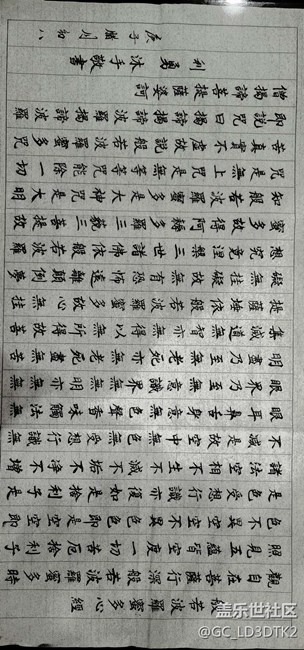 般若波羅蜜多心經
觀自在菩薩行深般若波羅蜜多時
照見五蘊皆空度一切苦厄捨利子
色不異空空不異色色即是空空即
是色受想行識亦復如是捨利子是
諸法空相不生不滅不垢不淨不增
不減是故空中無色無受想行識無
眼耳鼻舌身意無色聲香味觸法無
眼界乃至無意識界無無明亦無無
明盡乃至無老死亦無老死盡無苦
集滅道無智亦無得以無所得故菩
提薩埵依般若波羅蜜多故心無挂
礙無挂礙故無有恐怖遠離顛倒夢
想究竟涅槃三世諸佛依般若波羅
蜜多故得阿耨多羅三藐三菩提故
知般若波羅蜜多是大神咒是大明
咒是無上咒是無等等咒能除一切
苦真實不虛故說般若波羅蜜多咒
即說咒曰揭諦揭諦波羅揭諦波羅
僧揭諦菩提薩婆訶
利勇沐手敬書
庚子臘月初八
盖乐世社区
@GC_LD3DTK2